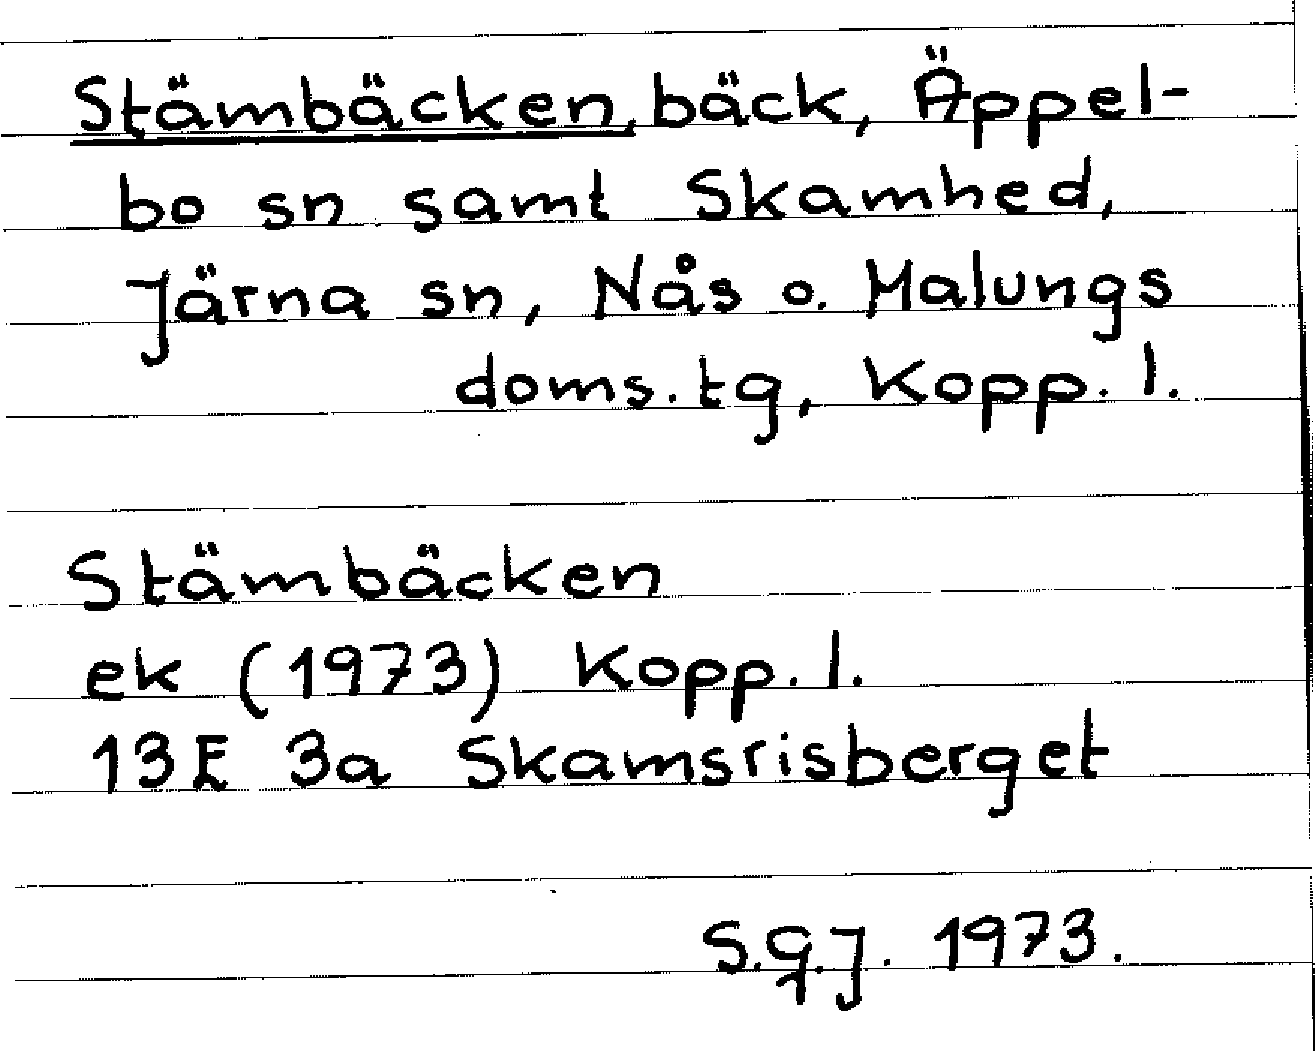 Stämbäcken, bäck, Äppel-
bo sn samt Skamhed,
Järna sn, Nås o. Malungs
doms.tg, Kopp. l.
Stämbäcken
ek (1973) Kopp. l.
13E 3a Skamsrisberget
S.G.J. 1973.